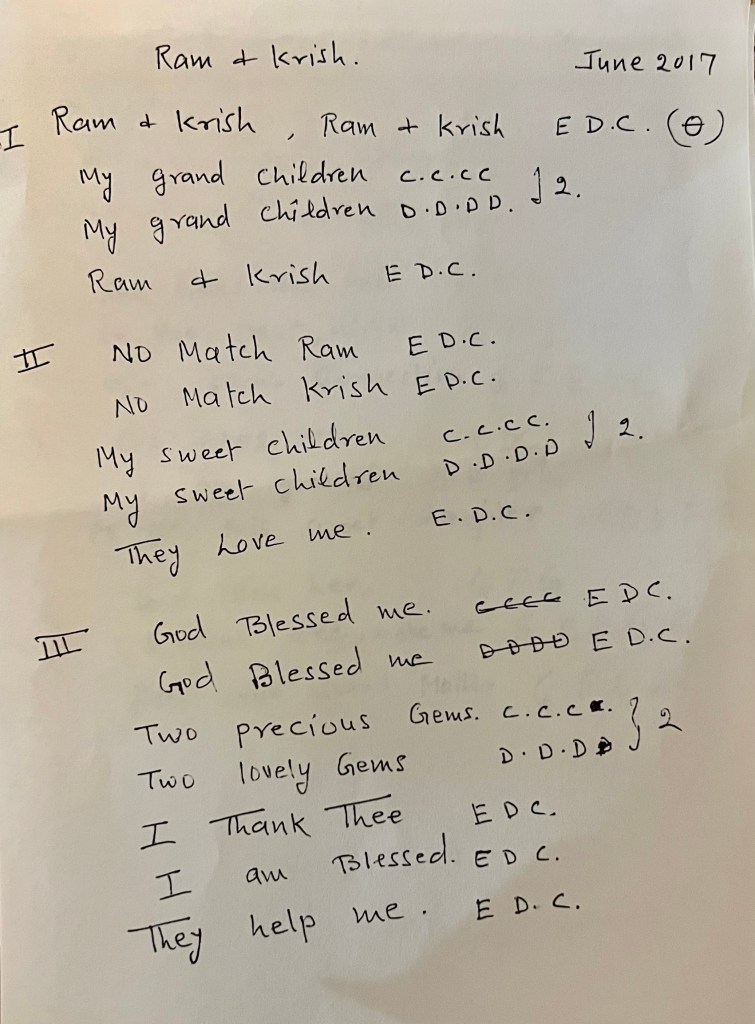 Ram & Krish. June 2017
I Ram & Krish, Ram & Krish E D.C. (θ)
My grand children C.C.CC
My grand children D.D.DD. } 2.
Ram & Krish E D.C.
II NO Match Ram E D.C.
NO Match Krish E D.C.
My sweet children C.C.C C.
My sweet children D.D.D.D } 2.
They Love me. E.D.C.
III God Blessed me. CCCC E D C.
God Blessed me DDDD E D.C.
Two precious Gems. C.C.C
Two lovely Gems D.D.D } 2
I Thank Thee E D C.
I am Blessed. E D C.
They help me. E D.C.